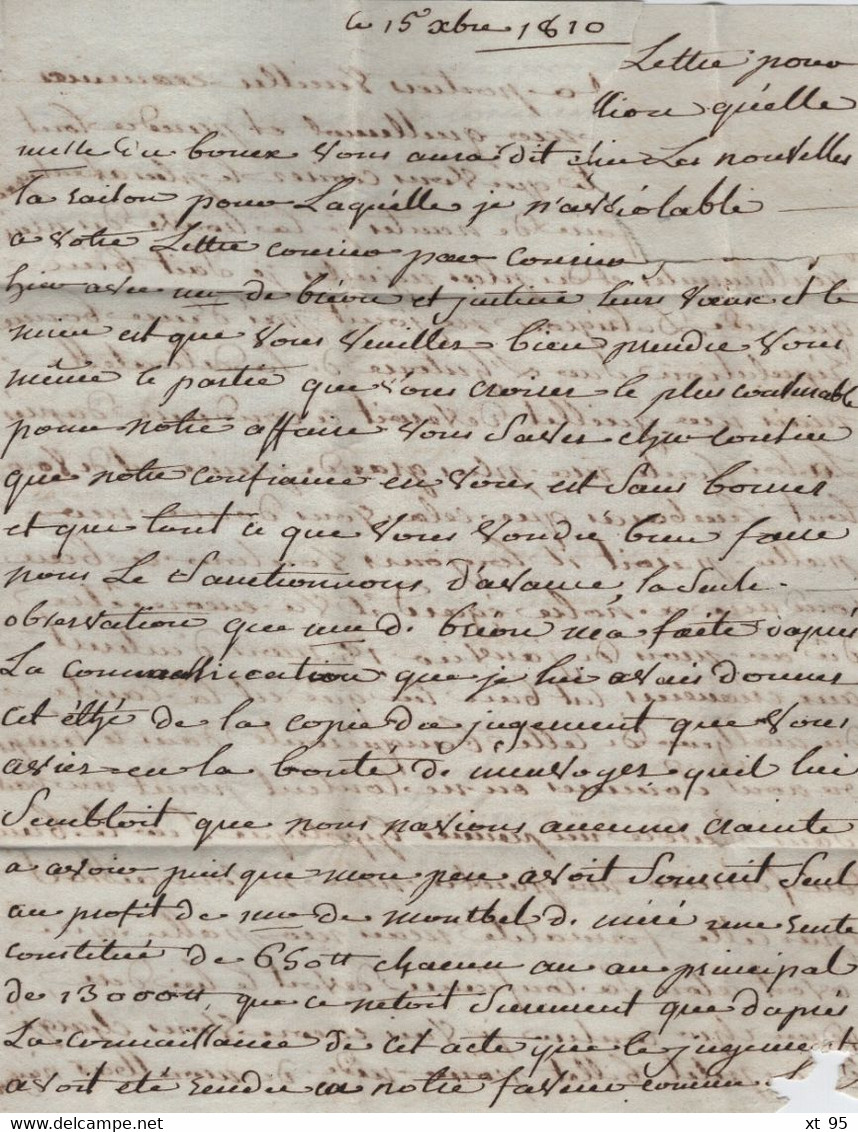 le 15 xbre 1810
Lettre pour
tion qu'elle
melle du bouex vous aura dit cher Les nouvelles
La raison pour Laquelle je n'ai
a votre Lettre courier par courier,
hier avec mr de brion et justine leurs voeux et le
mien est que vous veuilles bien prendre vous
même le partie que vous croires le plus convenable
pour notre affaire vous saves cher cousin
que notre confiance en vous est sans bornes
et que tout ce que vous voudré bien faire
nous Le Sanctionnons d'avance, la seule
observation que mr d. brion ma faëte dapres
La communication que je lui avais donner
cet été de la copie du jugement que vous
avies eu la bonté de m'envoyer quil lui
sembloit que nous navions aucune crainte
a avoir puisque mon pere avoit souscrit seul
au profit de mr de montbel de une rente
constitué de 650tt chacun an au principal
de 13000tt, que ce netoit surement que dapres
La connaissance de cet acte que le jugement
avoit été rendu en notre faveur comme
xt 95